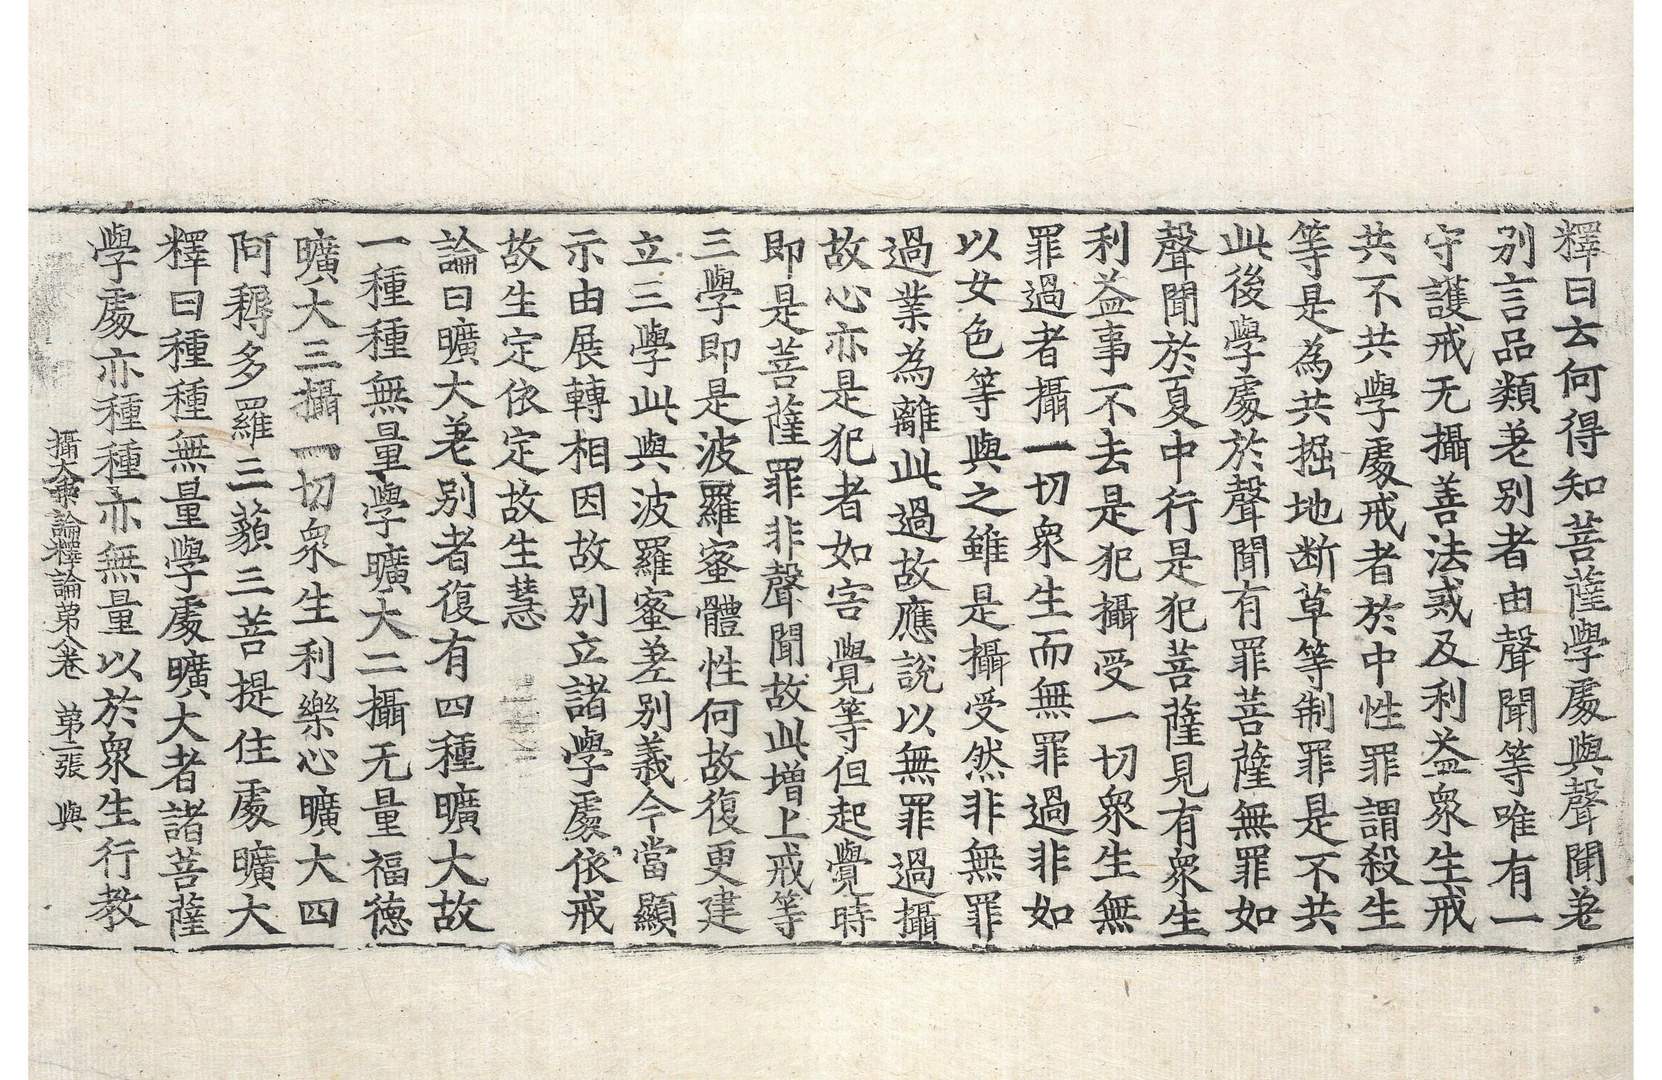 釋曰云何得知菩薩學處與聲聞差
別言品類差別者由聲聞等唯有一
守護戒无攝善法戒及利益衆生戒
共不共學處戒者於中性罪謂殺生
等是為共掘地断草等制罪是不共
此後學處於聲聞有罪菩薩無罪如
聲聞於夏中行是犯菩薩見有衆生
利益事不去是犯攝受一切衆生無
罪過者攝一切衆生而無罪過非如
以女色等與之雖是攝受然非無罪
過業為離此過故應說以無罪過攝
故心亦是犯者如害覺等但起覺時
即是菩薩罪非聲聞故此增上戒等
三學即是波羅蜜體性何故復更建
立三學此與波羅蜜差別義今當顯
示由展轉相因故別立諸學處依戒
故生定依定故生慧
論曰曠大差別者復有四種曠大故
一種種無量學曠大二攝无量福德
曠大三攝一切衆生利樂心曠大四
阿耨多羅三藐三菩提住處曠大
釋曰種種無量學處曠大者諸菩薩
學處亦種種亦無量以於衆生行教
攝大乘論釋論第八卷 第二張 與